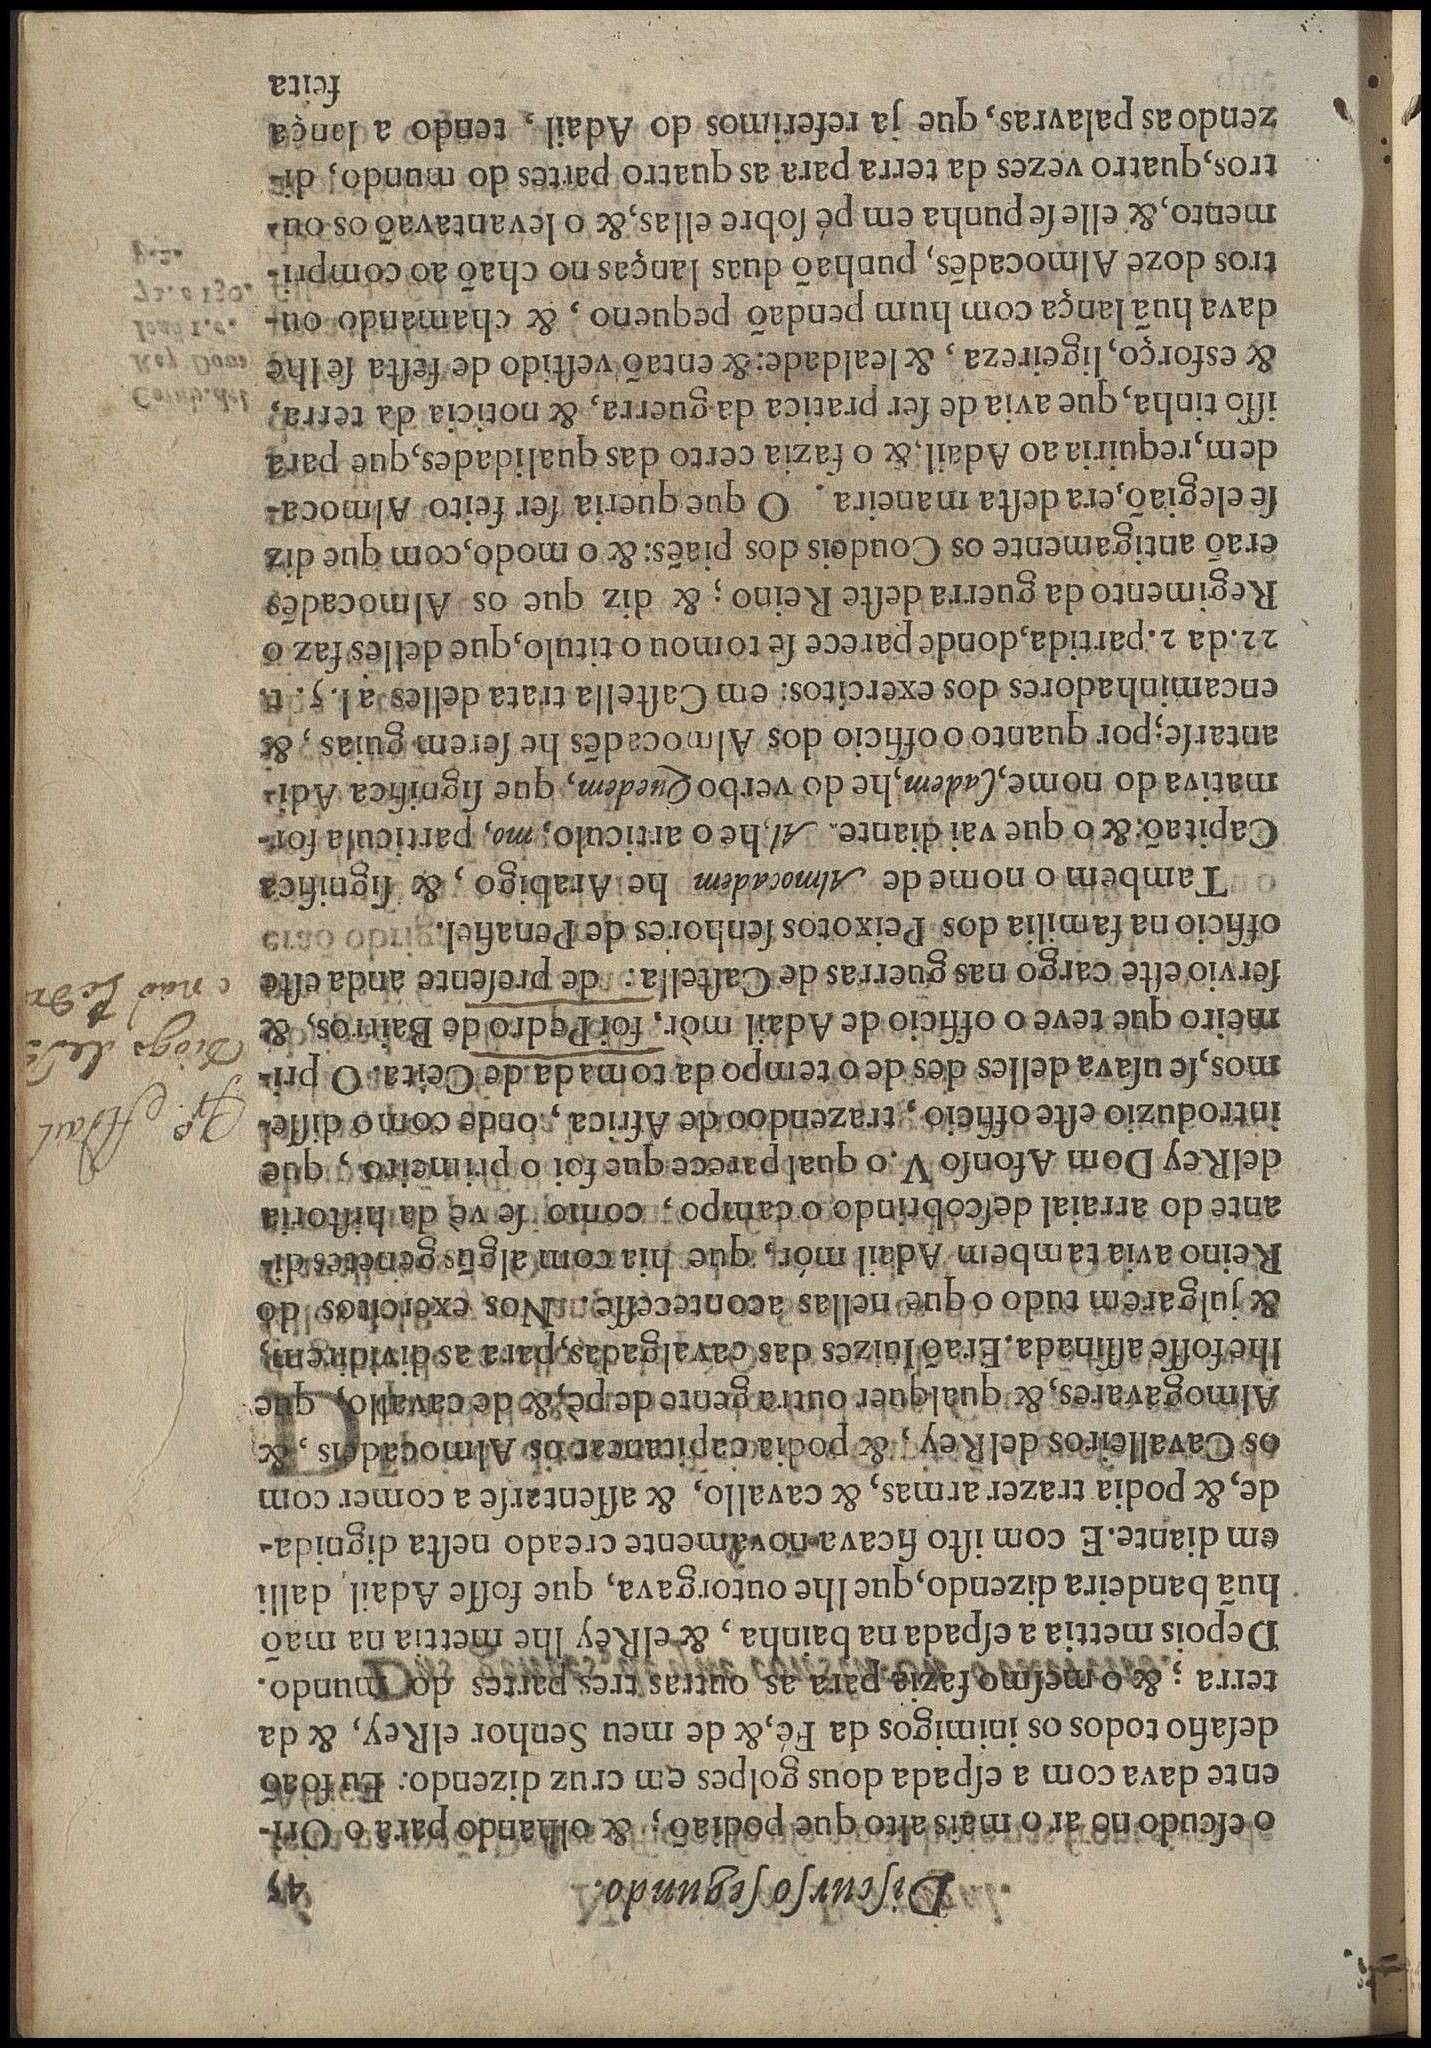 Diſcurſo ſegundo. 45
o eſcudo no ar o mais alto que podiaõ; & olhando para o Ori-
ente dava com a eſpada dous golpes em cruz dizendo: Eu foaõ
deſafio todos os inimigos da Fé, & de meu Senhor elRey, & da
terra; & o meſmo fazia para as outras tres partes do mundo.
Depois mettia a eſpada na bainha, & elRey lhe mettia na maõ
huã bandeira dizendo, que lhe outorgava, que foſſe Adail dalli
em diante. E com iſto ficava novamente creado neſta dignida-
de, & podia trazer armas, & cavallo, & aſſentarſe a comer com
os Cavalleiros delRey; & podia capitanear os Almocadeis, &
Almogavares, & qualquer outra gente de pè, & de cavallo, que
lhe foſſe aſſinada. Eraõ Iuizes das cavalgadas, para as dividirem,
& julgarem tudo o que nellas aconteceſſe. Nos exercitos do
Reino avia tambem Adail mór, que hia com algũs genetes di-
ante do arraial deſcobrindo o campo; como ſe vè da hiſtoria
delRey Dom Afonſo V. o qual parece que foi o primeiro, que
introduzio eſte officio; trazendoo de Africa, onde como diſſe-
mos, ſe uſava delles des de o tempo da tomada de Ceita. O pri-
meiro que teve o officio de Adail mòr, foi Pedro de Bairros, &
ſervio eſte cargo nas guerras de Caſtella: de preſente anda eſte
officio na familia dos Peixotos ſenhores de Penafiel.
Tambem o nome de Almocadem he Arabigo, & ſignifica
Capitaõ: & o que vai diante. Al, he o articulo; mo, particula for-
mativa do nome, Cadem, he do verbo Quedem, que ſignifica Adi-
antarſe; por quanto o officio dos Almocadẽs he ſerem guias, &
encaminhadores dos exercitos: em Caſtella trata delles a l. 5. t.
22. da 2. partida, donde parece ſe tomou o titulo, que delles faz o
Regimento da guerra deſte Reino; & diz que os Almocadẽs
eraõ antigamente os Coudeis dos piaẽs: & o modo, com que diz
ſe elegiaõ, era deſta maneira. O que queria ſer feito Almoca-
dem, requiria ao Adail, & o fazia certo das qualidades, que para
iſſo tinha, que avia de ſer pratica da guerra, & noticia da terra,
& esforço, ligeireza, & lealdade: & entaõ veſtido de feſta ſe lhe
dava huã lança com hum pendaõ pequeno, & chamando ou-
tros doze Almocadẽs, punhaõ duas lanças no chaõ ao compri-
mento, & elle ſe punha em pé ſobre ellas, & o levantavaõ os ou-
tros, quatro vezes da terra para as quatro partes do mundo, di-
zendo as palavras, que ja referimos do Adail, tendo a lança
feita